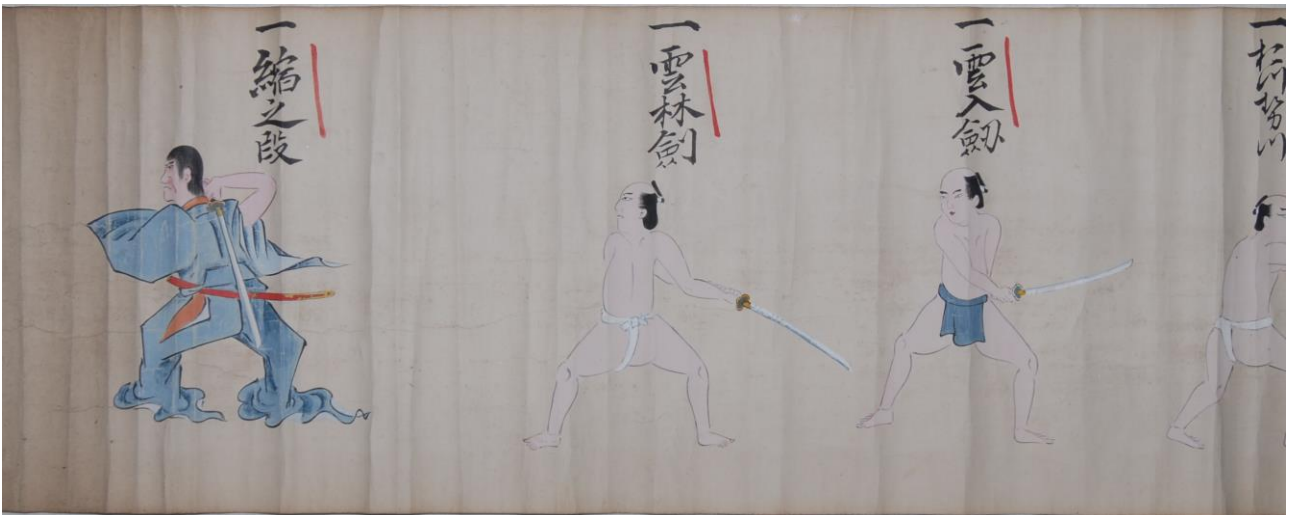 一 雲入劔
一 雲林劍
一 縮之段